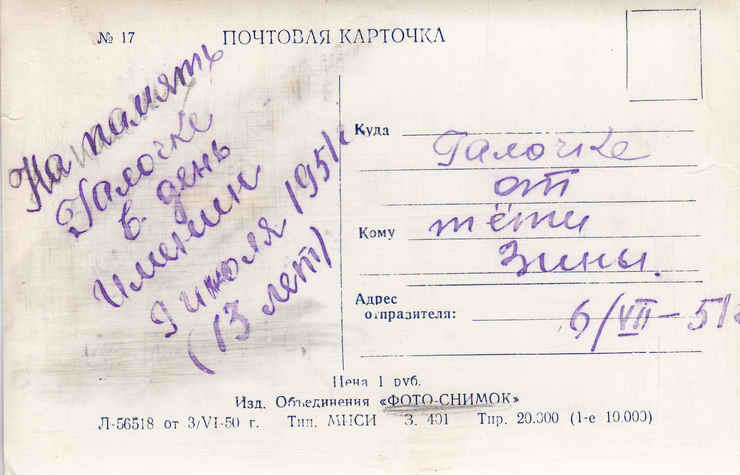 № 17 ПОЧТОВАЯ КАРТОЧКА
На память
Галочке
в день
именин
9 июля 1951г
(13 лет)
Куда
Галочке
от
Кому тёти
Зины.
Адрес
отправителя: 6/VII-51г
Цена 1 руб.
Изд. Объединения «ФОТО-СНИМОК»
Л-56518 от 3/VI-50 г. Тип. МИСИ З. 401 Тир. 20.000 (1-е 10.000)